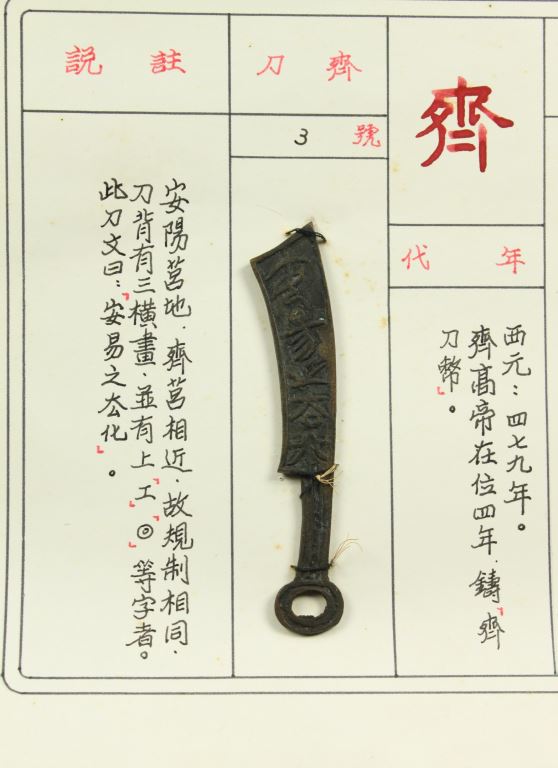 齊
年代
西元：四七九年。
齊高帝在位四年．鑄「齊
刀幣」。
齊刀
號 3
註説
安陽莒地．齊莒相近．故規制相同．
刀背有三橫畫．並有上「工」「◎」等字者。
此刀文曰：「安易之厺化」。